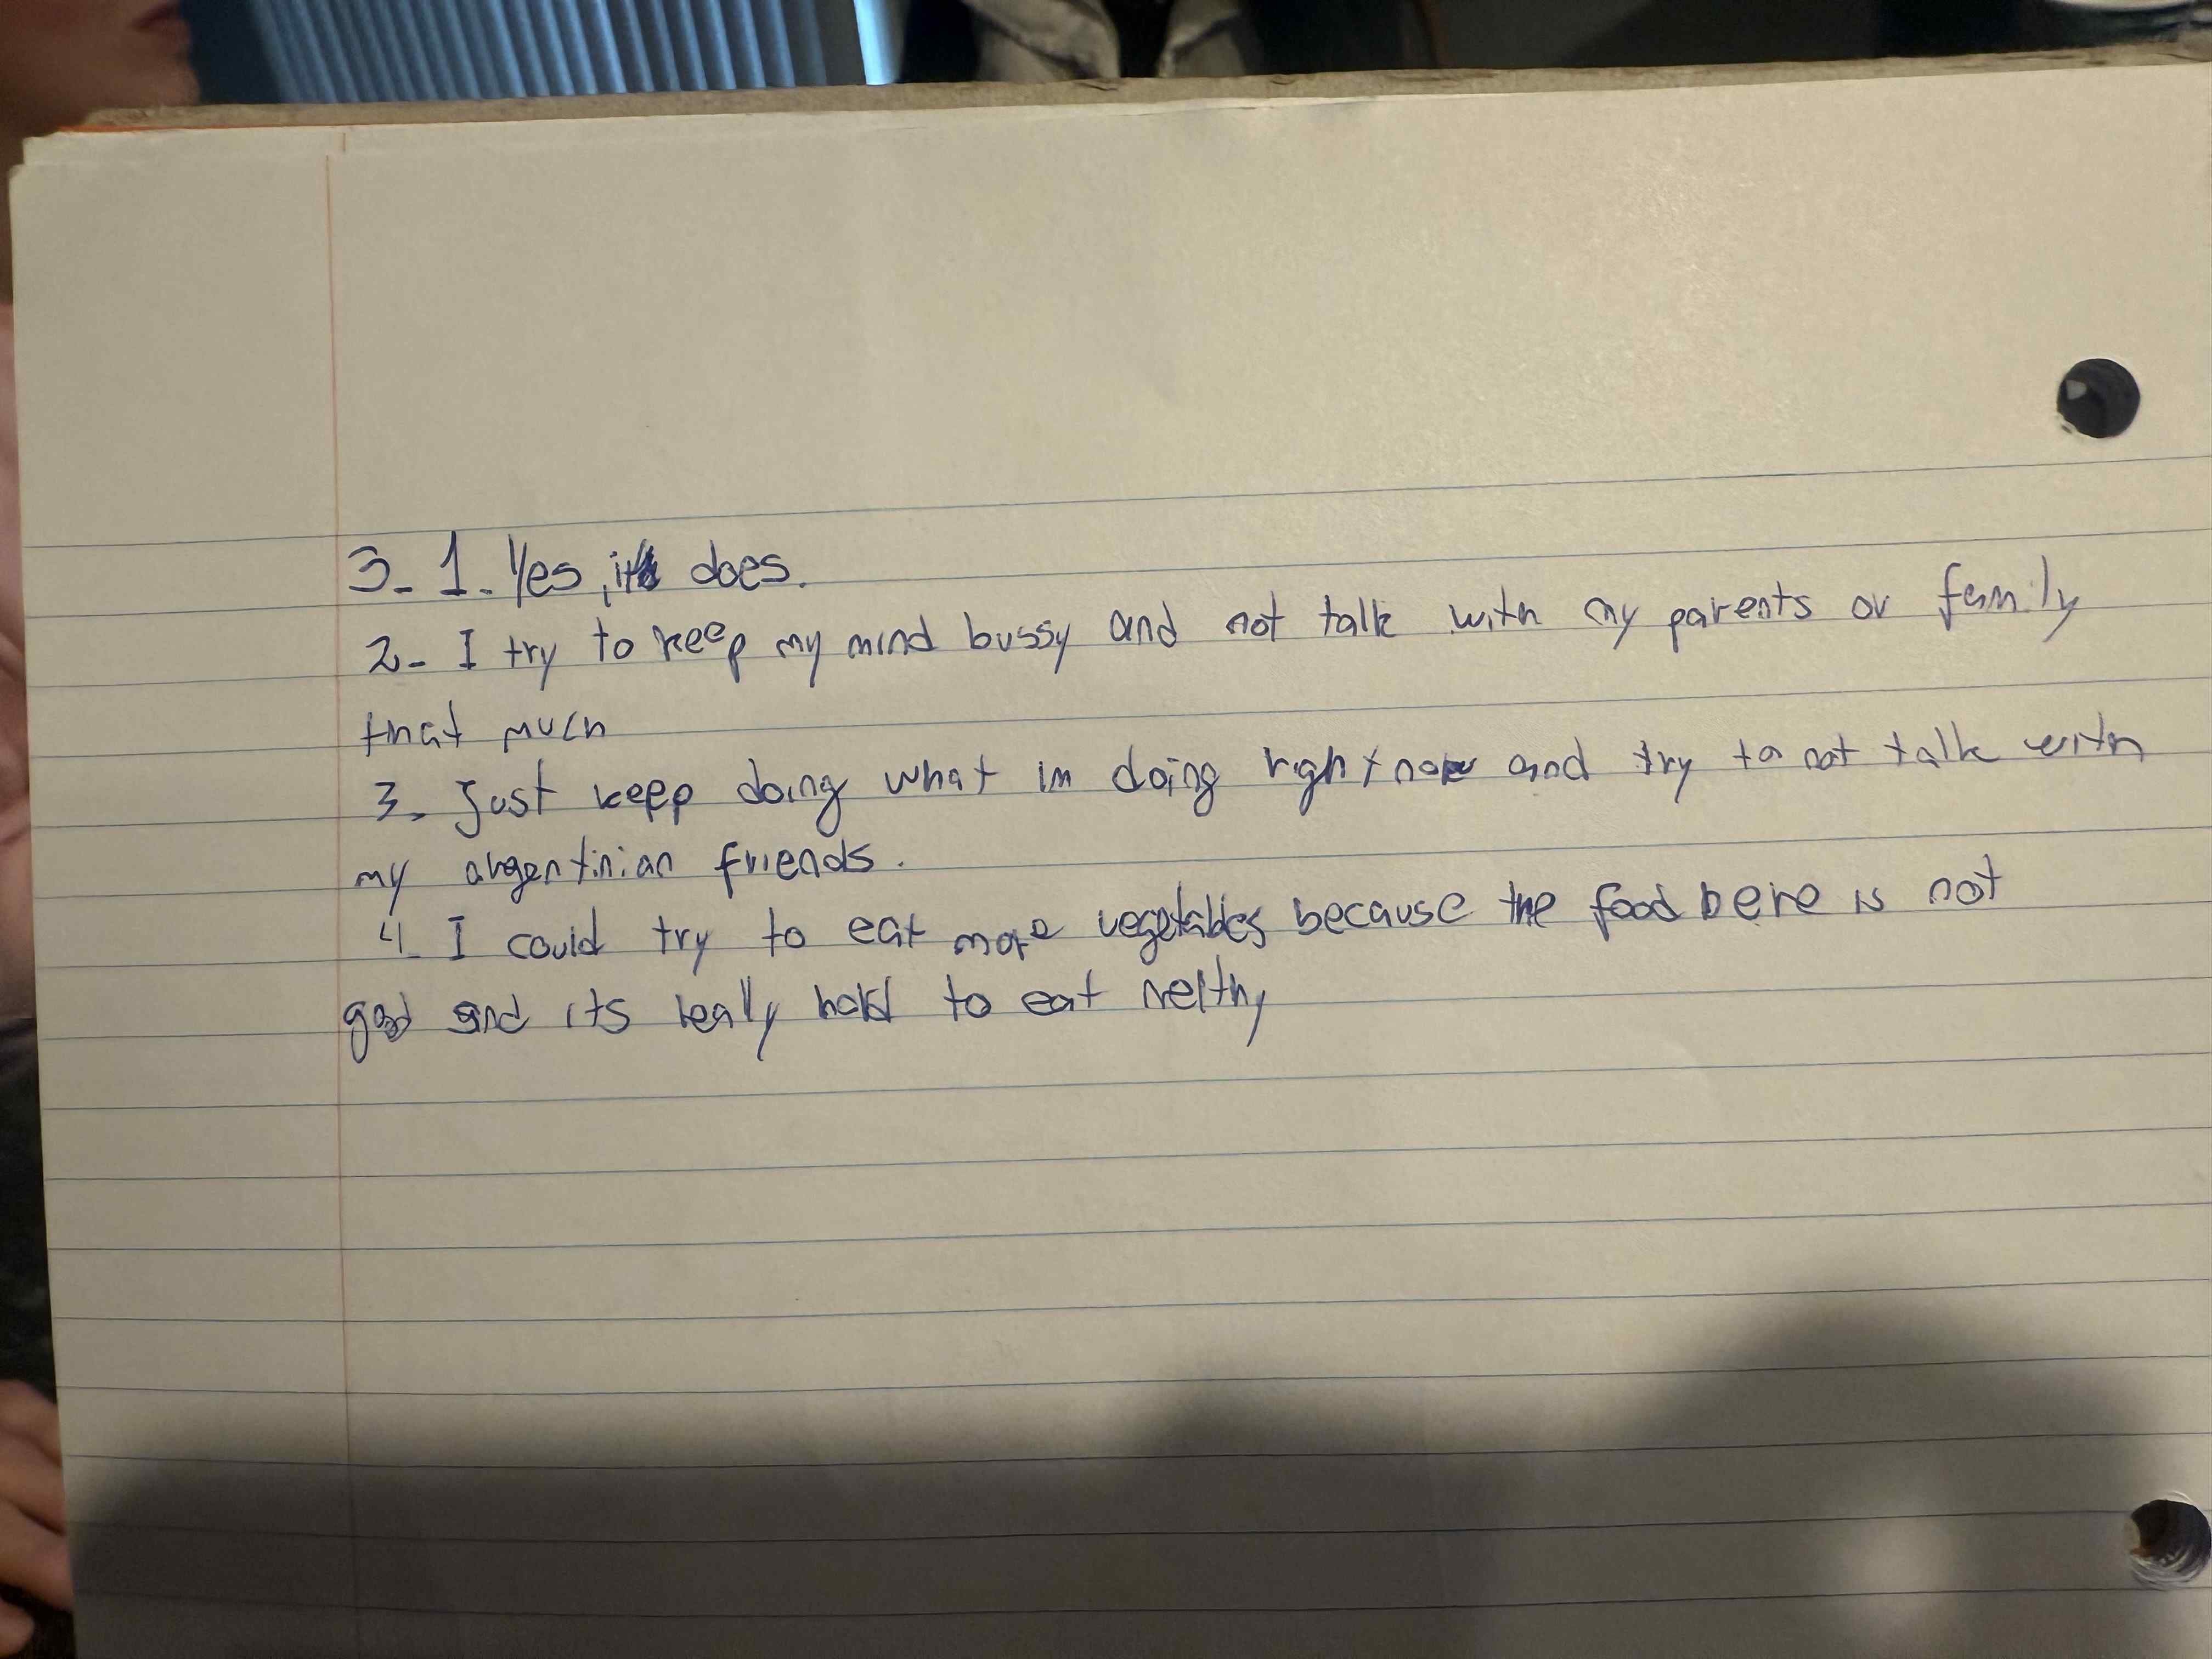 3- 1- Yes, it does.
2- I try to keep my mind bussy and not talk with my parents or family
that much
3- Just kepp doing what im doing right now and try to not talk with
my argentinian friends.
4- I could try to eat more vegetables because the food here is not
good and its really hard to eat